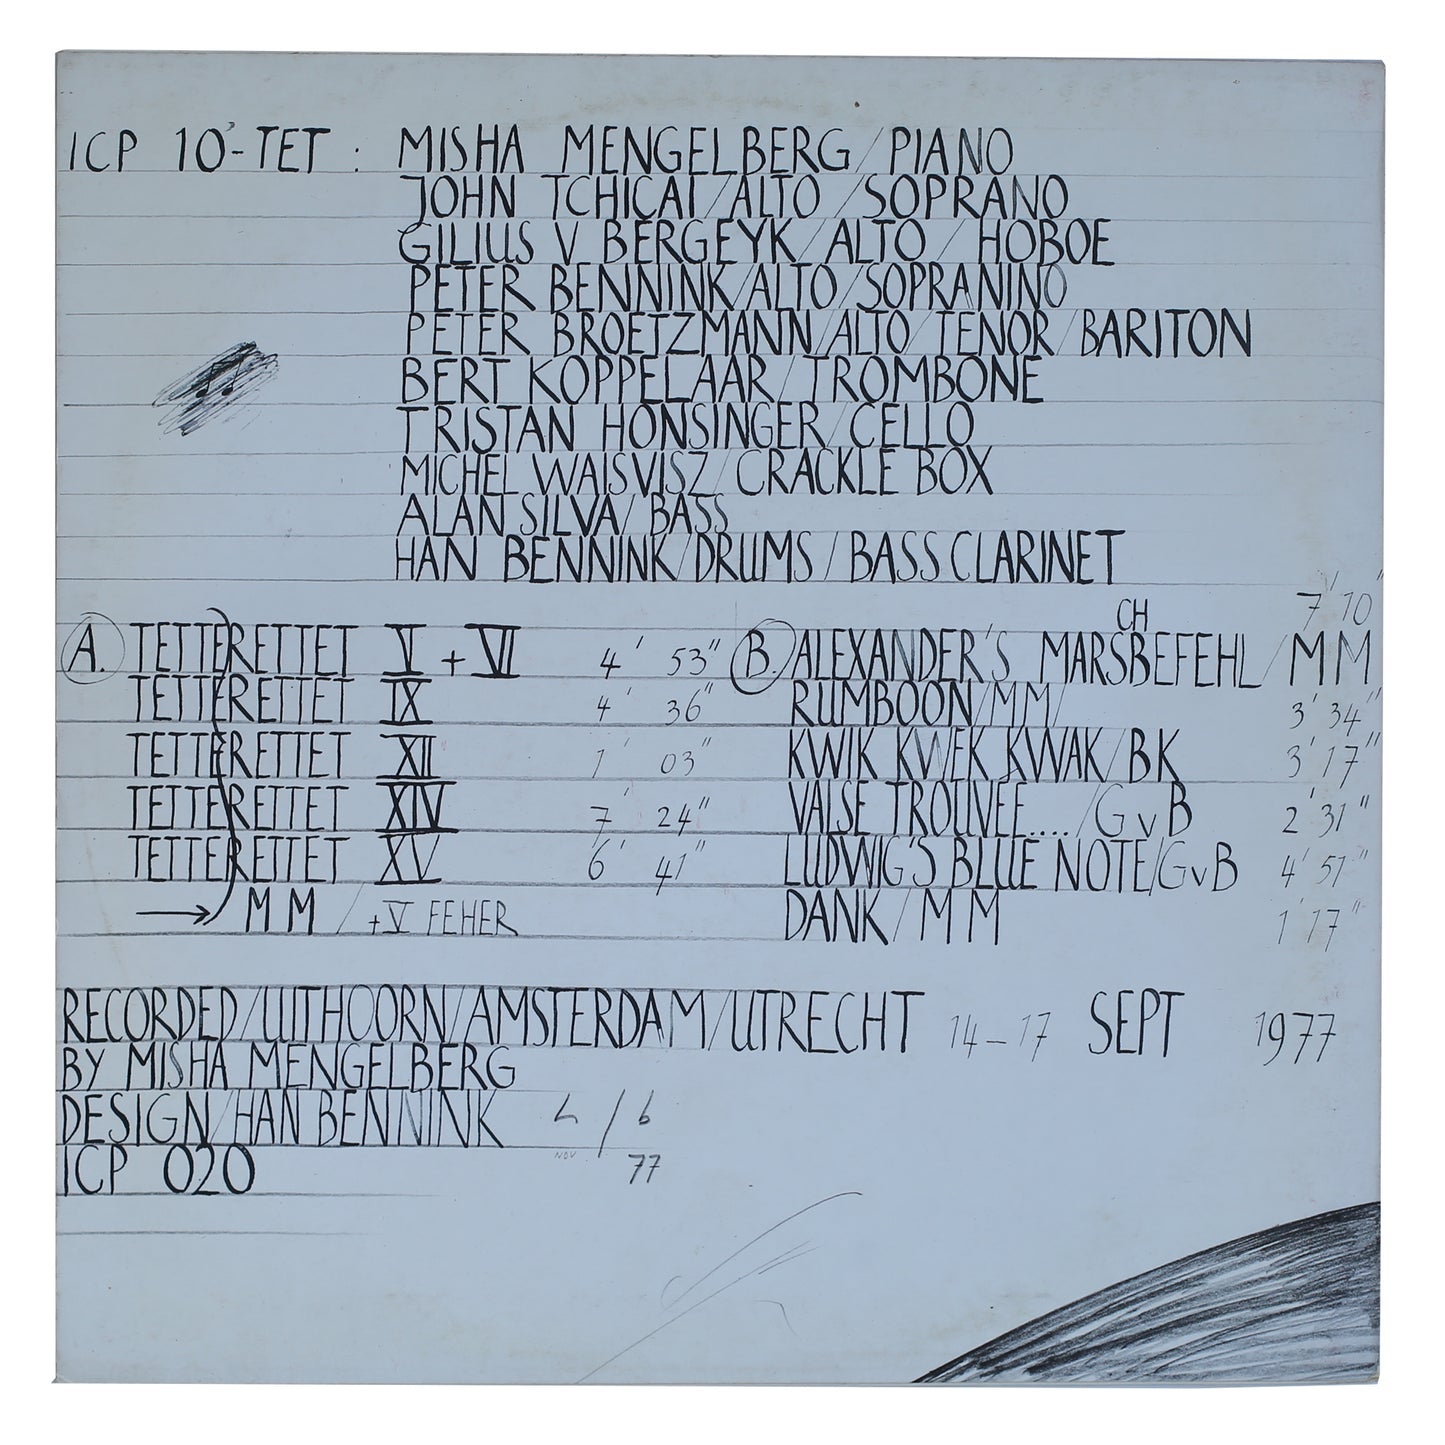 ICP 10'-TET : MISHA MENGELBERG/PIANO
JOHN TCHICAI/ALTO/SOPRANO
GILIUS V BERGEYK/ALTO/HOBOE
PETER BENNINK/ALTO/SOPRANINO
PETER BROETZMANN/ALTO/TENOR/BARITON
BERT KOPPELAAR/TROMBONE
TRISTAN HONSINGER/CELLO
MICHEL WAISVISZ/CRACKLE BOX
ALAN SILVA/BASS
HAN BENNINK/DRUMS/BASSCLARINET
A. TETTERETTET V + VI 4' 53"
TETTERETTET IX 4' 36"
TETTERETTET XII 1' 03"
TETTERETTET XIV 7' 24"
TETTERETTET XV 6' 41"
→ MM / +V FEHER
7' 10"
CH
B. ALEXANDER'S MARSBEFEHL/MM
RUMBOON/MM/ 3' 34"
KWIK KWEK KWAK/BK 3' 17"
VALSE TROUVEE..../GvB 2' 31"
LUDWIG'S BLUE NOTE/GvB 4' 51"
DANK/MM 1' 17"
RECORDED/UITHOORN/AMSTERDAM/UTRECHT 14-17 SEPT 1977
BY MISHA MENGELBERG
DESIGN/HAN BENNINK
NOV 77
ICP 020